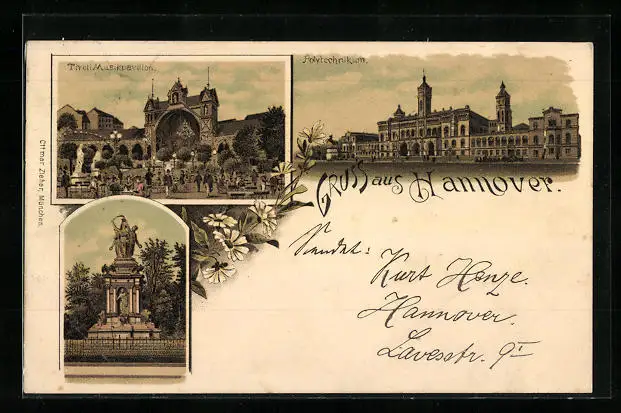 Tivoli Musikpavillon.
Polytechnikum.
Gruss aus Hannover.
Ottmar Zieher, München.
Sendet:
Kurt Henze.
Hannover.
Lavesstr. 9I